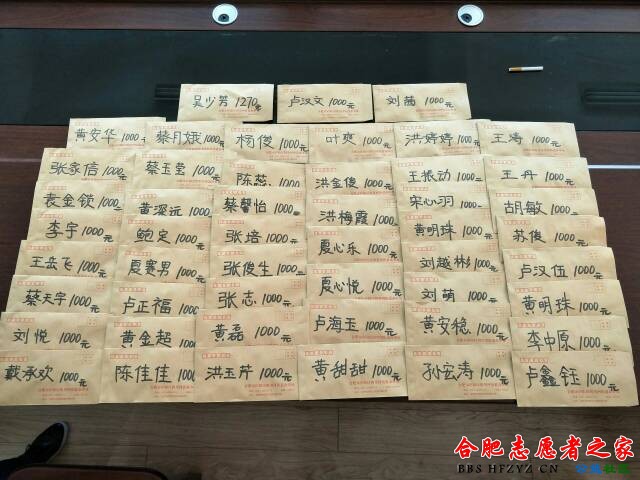 吴少芳 1270元
卢汉文 1000元
刘茜 1000元
黄安华 1000元
蔡月娥 1000元
杨俊 1000元
叶爽 1000元
洪婷婷 1000元
王涛 1000元
张家信 1000元
蔡玉莹 1000元
陈蕊 1000元
洪金俊 1000元
王振动 1000元
王丹 1000元
袁金锁 1000元
黄深远 1000元
蔡馨怡 1000元
洪梅霞 1000元
宋心羽 1000元
胡敏 1000元
李宇 1000元
鲍定 1000元
张培 1000元
夏心乐 1000元
黄明珠 1000元
苏俊 1000元
王岳飞 1000元
夏赛男 1000元
张俊生 1000元
夏心悦 1000元
刘越彬 1000元
卢汉伍 1000元
蔡天宇 1000元
卢正福 1000元
张志 1000元
卢海玉 1000元
刘萌 1000元
黄明珠 1000元
刘悦 1000元
黄金超 1000元
黄磊 1000元
黄安稳 1000元
李中原 1000元
戴承欢 1000元
陈佳佳 1000元
洪玉芹 1000元
黄甜甜 1000元
孙玄涛 1000元
卢鑫钰 1000元
合肥志愿者之家
BBS HFZYZ CN